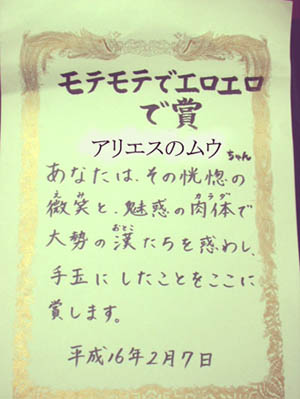 モテモテでエロエロ
で賞
アリエスのムウちゃん
あなたは、その恍惚の
微笑と、魅惑の肉体で
大勢の漢たちを惑わし、
手玉にしたことをここに
賞します。
平成16年2月7日